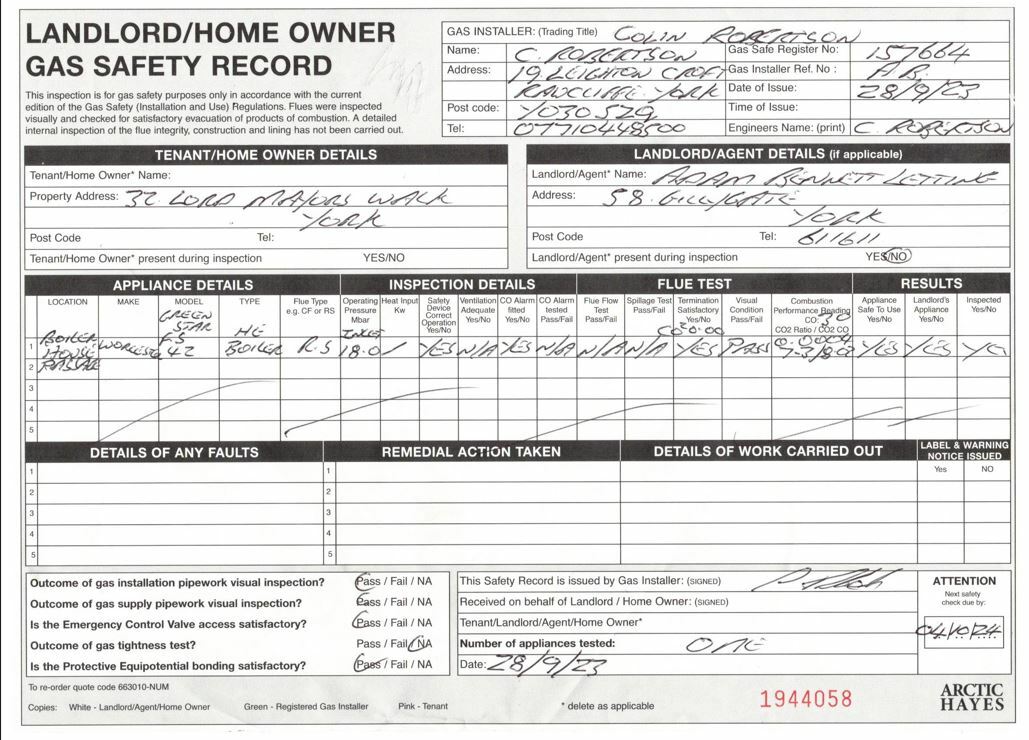 LANDLORD/HOME OWNER
GAS SAFETY RECORD
This inspection is for gas safety purposes only in accordance with the current
edition of the Gas Safety (Installation and Use) Regulations. Flues were inspected
visually and checked for satisfactory evacuation of products of combustion. A detailed
internal inspection of the flue integrity, construction and lining has not been carried out.
GAS INSTALLER: (Trading Title) COLIN ROBERTSON
Name: C. ROBERTSON Gas Safe Register No: 157664
Address: 19, LEIGHTON CROFT Gas Installer Ref. No : A.B.
RAWCLIFFE. YORK Date of Issue: 28/9/23
Post code: YO30 5ZG Time of Issue:
Tel: 07710448500 Engineers Name: (print) C. ROBERTSON
TENANT/HOME OWNER DETAILS
Tenant/Home Owner* Name:
Property Address: 32 LORD MAJORS WALK
YORK
Post Code Tel:
Tenant/Home Owner* present during inspection YES/NO
LANDLORD/AGENT DETAILS (if applicable)
Landlord/Agent* Name: ADAM BENNETT LETTING
Address: 58. GILLYGATE
YORK
Post Code Tel: 611611
Landlord/Agent* present during inspection YES/NO
APPLIANCE DETAILS INSPECTION DETAILS FLUE TEST RESULTS
LOCATION MAKE MODEL TYPE Flue Type e.g. CF or RS Operating Pressure Mbar Heat Input Kw Safety Device Correct Operation Yes/No Ventilation Adequate Yes/No CO Alarm fitted Yes/No CO Alarm tested Pass/Fail Flue Flow Test Pass/Fail Spillage Test Pass/Fail Termination Satisfactory Yes/No Visual Condition Pass/Fail Combustion Performance Reading CO: CO2 Ratio / CO2 CO Appliance Safe To Use Yes/No Landlord's Appliance Yes/No Inspected Yes/No
1 BOILER HOUSE WORCESTER GREEN STAR FS 42 HE BOILER R.S INLET 18.0 / YES N/A YES N/A N/A N/A CO 0.00 YES PASS 30 0.0004 YES YES YES
2
3
4
5
DETAILS OF ANY FAULTS REMEDIAL ACTION TAKEN DETAILS OF WORK CARRIED OUT LABEL & WARNING NOTICE ISSUED
Yes NO
1 1
2 2
3 3
4 4
5 5
Outcome of gas installation pipework visual inspection? Pass / Fail / NA
Outcome of gas supply pipework visual inspection? Pass / Fail / NA
Is the Emergency Control Valve access satisfactory? Pass / Fail / NA
Outcome of gas tightness test? Pass / Fail / NA
Is the Protective Equipotential bonding satisfactory? Pass / Fail / NA
This Safety Record is issued by Gas Installer: (SIGNED)
Received on behalf of Landlord / Home Owner: (SIGNED)
Tenant/Landlord/Agent/Home Owner*
Number of appliances tested: ONE
Date: 28/9/23
ATTENTION
Next safety
check due by:
04/10/24
To re-order quote code 663010-NUM
Copies: White - Landlord/Agent/Home Owner Green - Registered Gas Installer Pink - Tenant * delete as applicable
1944058
ARCTIC
HAYES